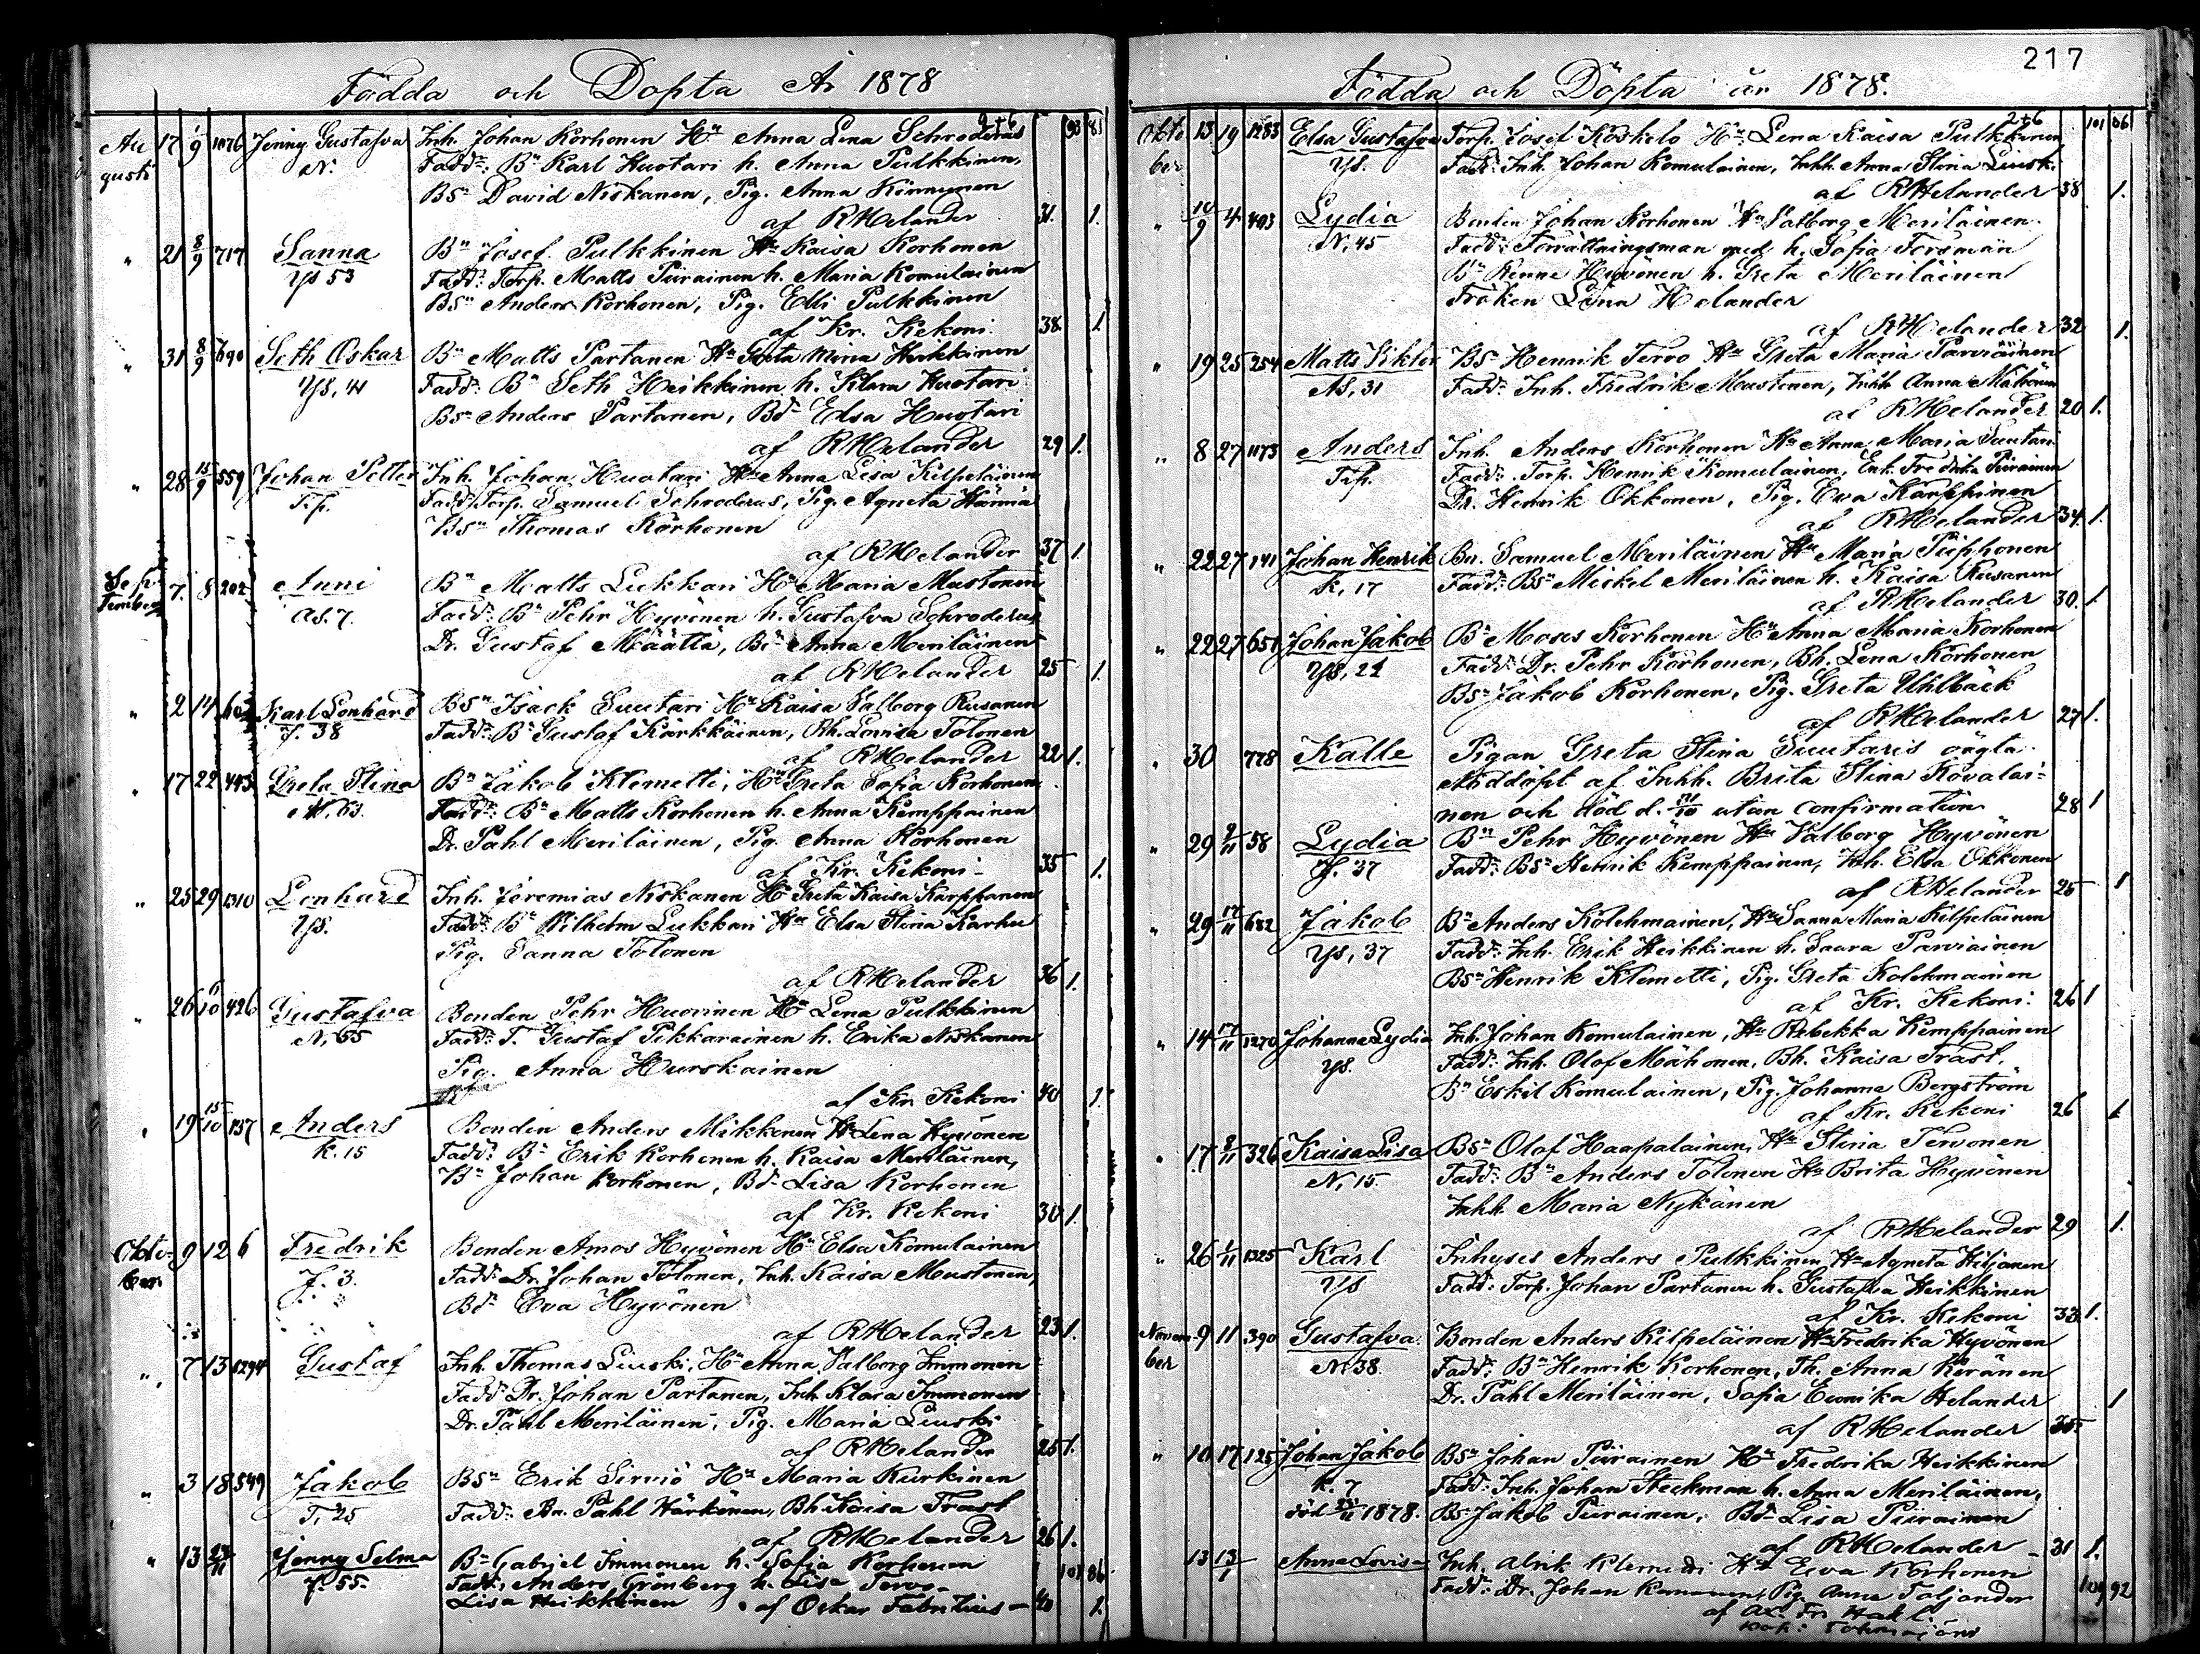 217
Födda och Döpta År 1878
Au gusti 17 1/9 1076 Jenny Gustafva Inh. Johan Korhonen Hu Anna Lena Schroderus 98 81
N. Fadd: Bn Karl Huotari h. Anna Pulkkinen,
Bsn David Niskanen, Pig. Anna Kinnunen
af RHelander 31. 1.
" 21 8/9 717 Sanna Bn Josef Pulkkinen Hu Kaisa Korhonen
Ys 53 Fadd: Torp. Matts Piirainen h. Maria Komulainen
Bsn Anders Korhonen, Pig. Elli Pulkkinen
af Kr. Kekoni 38 1
" 31 8/9 690 Seth Oskar Bn Matts Partanen Hu Greta Mina Heikkinen
Ys, 41 Fadd: Bn Seth Heikkinen h. Klara Huotari
Bsn Anders Partanen, Bd. Elsa Huotari
af RHelander 29 1.
" 28 15/9 559 Johan Petter Inh. Johan Huotari Hu Anna Lisa Kilpeläinen
T.p. Fadd: Torp. Samuel Schroderus, Pig. Agneta Hännin
Bsn Thomas Korhonen
af RHelander 37 1.
Sep tember 7. 8 202 Anni Bn Matts Lukkari Hu Maria Mustonen
As. 7. Fadd: Bn Pehr Hyvönen h. Gustafva Schroderus
Dr. Gustaf Määttä, Bd. Anna Meriläinen
af RHelander 25 1.
" 2 14 Karl Lenhard Bsn Isack Suutari Hu Kaisa Valborg Rusanen
J. 38 Fadd: Bn Gustaf Kärkkäinen, Bh. Lovisa Tolonen
af RHelander 22 1.
" 17 22 443 Greta Stina Bn Jakob Klemetti, Hu Greta Sofia Korhonen
N, 63. Fadd: Bn Matts Korhonen h. Anna Kemppainen
Dr. Påhl Meriläinen, Pig. Anna Korhonen
af Kr. Kekoni 35 1.
" 25 29 1310 Lenhard Inh. Jeremias Niskanen Hu Greta Kaisa Karppanen
Ys. Fadd: Bn Wilhelm Lukkari Hu Elsa Stina Karhu
Pig. Sanna Tolonen
af RHelander 36 1.
" 26 6/10 426 Gustafva Bonden Pehr Huovinen Hu Lena Pulkkinen
N, 55 Fadd: T. Gustaf Pikkarainen h. Erika Niskanen
Pig. Anna Hurskainen
af Kr. Kekoni 40 1.
" 19 15/10 137 Anders Bonden Anders Mikkonen Hu Lena Hyvönen
K. 15 Fadd: Bn Erik Korhonen h. Kaisa Meriläinen,
Bn Johan Korhonen, Bd. Lisa Korhonen
af Kr. Kekoni 30 1.
Okto- ber 9 12 6 Fredrik Bonden Amos Hyvönen Hu Elsa Komulainen
J. 3. Fadd: Dr. Johan Tolonen, Inh. Kaisa Mustonen,
Bd. Eva Hyvönen
af RHelander 23 1.
" 7 13 1294 Gustaf Inh. Thomas Liuski, Hu Anna Valborg Immonen
Fadd: Dr. Johan Partanen, Inh. Klara Immonen
Dr. Påhl Meriläinen, Pig. Maria Liuski
af RHelander 25 1.
" 3 18 549 Jakob Bsn Erik Sirviö Hu Maria Kurkinen
T, 25 Fadd: Bn. Påhl Härkönen, Bh Kaisa Trast
af RHelander 26 1.
" 13 Jenny Selma Bn Gabriel Immonen h. Sofia Korhonen 101 86
J. 55. Fadd: Anders Grönberg h. Lisa Tervo
Lisa Heikkinen af Oskar Fabritius 40 1.
Födda och Döpta år 1878.
Okto ber 13 19 1283 Elsa Gustafva Torp. Josef Koskelo Hu Lena Kaisa Pulkkinen 101 86
Ys. Fadd: Inh. Johan Komulainen, Inhh. Anna Stina Liuski
af RHelander 38 1.
" 10/9 4 493 Lydia Bonden Johan Korhonen Hu Valborg Meriläinen.
N, 45 Fadd: Förrättningsman med h. Sofia Forsman
Bn Renne Hyvönen h. Greta Meriläinen
Fröken Lina Helander
af RHelander 32 1.
" 19 25 254 Matts Viktor Bsn Henrik Tervo Hu Greta Maria Parviainen
AS, 31 Fadd: Inh. Fredrik Mustonen, Inhh. Anna Mähönen
af RHelander 20 1.
" 8 27 1173 Anders Inh. Anders Korhonen Hu Anna Maria Suutari
T.p. Fadd: Torp. Henrik Komulainen, Enk. Fredrika Piirainen
Dr. Henrik Okkonen, Pig. Eva Karppinen
af RHelander 34 1.
" 22 27 141 Johan Henrik Bn. Samuel Meriläinen Hu Maria Piipponen
K, 17 Fadd: Bsn Mickel Meriläinen h. Kaisa Rusanen
af RHelander 30. 1.
" 22 27 651 Johan Jakob Bn Moses Korhonen Hu Anna Maria Korhonen
Ys, 21 Fadd: Dr. Pehr Korhonen, Bh. Lena Korhonen
Bsn Jakob Korhonen, Pig. Greta Uhlbäck
af RHelander 27 1.
" 30 778 Kalle Pigan Greta Stina Suutaris oägta.
Nöddöpt af Inhh. Brita Stina Kovalai-
nen och död d. 31/10 utan confirmation 28 1
" 29 2/11 58 Lydia Bn Pehr Hyvönen Hu Valborg Hyvönen
J. 37 Fadd: Bsn Henrik Kemppainen, Inh. Elsa Okkonen
af RHelander 25 1
" 29 17/11 682 Jakob Bn Anders Kolehmainen, Hu Sanna Maria Kilpeläinen
Ys, 37 Fadd: Inh. Erik Heikkinen h. Saara Parviainen
Bsn Henrik Klemetti, Pig. Greta Kolehmainen
af Kr. Kekoni 26 1
" 14 17/11 1270 Johanna Lydia Inh. Johan Komulainen, Hu Rebekka Kemppainen
Ys. Fadd: Inh. Olof Mähönen, Bh. Kaisa Trast.
Bn Eskil Komulainen, Pig. Johanna Bergström
af Kr. Kekoni 26 1
" 17 2/11 326 Kaisa Lisa Bsn Olof Haapalainen, Hu Stina Tervonen
N, 15. Fadd: Bn Anders Tolonen Hu Brita Hyvönen
Inhh. Maria Nykänen
af RHelander 29 1.
" 26 1/11 1325 Karl Inhyses Anders Pulkkinen Hu Agneta Hiljanen
Ys Fadd: Torp. Johan Partanen h. Gustafva Heikkinen
af Kr. Kekoni 33 1.
Novem- ber 9 11 390 Gustafva Bonden Anders Kilpeläinen Hu Fredrika Hyvönen
N, 38. Fadd: Bn Henrik Korhonen, Th. Anna Keränen
Dr. Påhl Meriläinen, Sofia Eunika Helander 1
af RHelander 35
" 10 17 125 Johan Jakob Bsn Johan Piirainen Hu Fredrika Heikkinen
K. 7 Fadd: Inh. Johan Steckman h. Anna Meriläinen,
död 1878. Bsn Jakob Piirainen, Bd. Lisa Piirainen
af RHelander 31 1.
13 Anna Lovisa Inh. Alrik Klemetti Hu Eva Korhonen
Fadd: Dr. Johan Pig. Anna Taljander 109 92